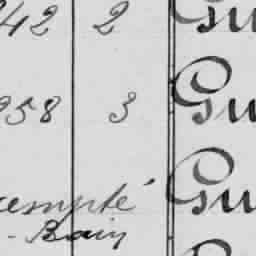 42 2 Gu
958 3 Gu
exempté Gu
- Bain